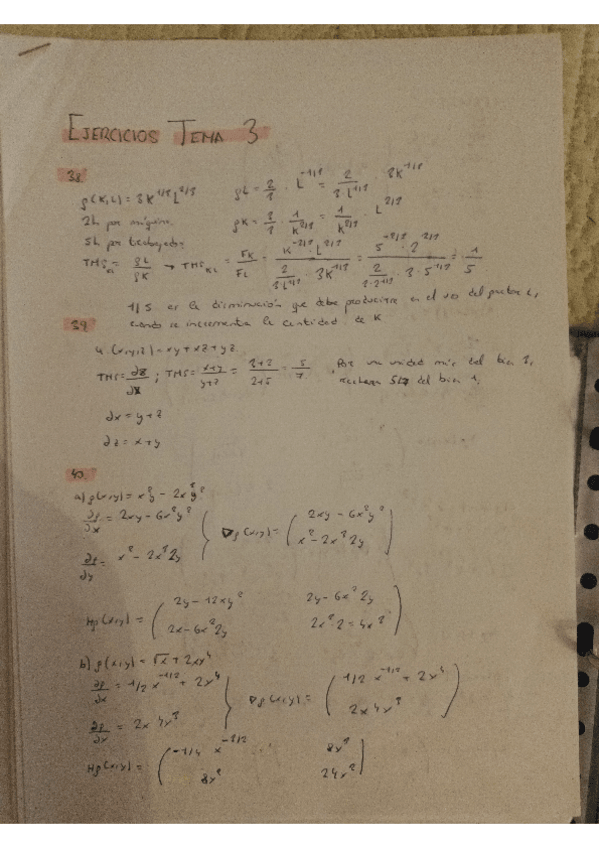 EJERCICIOS TEMA 3
38
f(K,L) = 3K^1/3 L^2/3
fL = 2/3 · L^-1/3 = 2/3·L^1/3 · 3K^1/3
2h por máquina.
fK = 3/3 · 1/K^2/3 = 1/K^2/3 · L^2/3
5h por trabajador
TMS_KL = fL/fK → TMS_KL = FK/FL = K^-2/3 · L^2/3 / 2/3·L^1/3 · 3K^1/3 = 5^-2/3 · 2^2/3 / 2/3·2^1/3 · 3·5^1/3 = 1/5
1/5 es la disminución que debe producirse en el uso del factor L,
cuando se incrementa la cantidad de K
39
u(x,y,z) = xy + xz + yz
TMS = ∂z/∂x ; TMS = x+y/y+z = 3+2/2+5 = 5/7 . Por una unidad más del bien 3,
5/7 del bien 1.
∂x = y+z
∂z = x+y
40.
a) f(x,y) = x²y − 2x³y²
∂f/∂x = 2xy − 6x²y²
∇f(x,y) = ( 2xy − 6x²y²
x² − 2x³2y )
∂f/∂y = x² − 2x³2y
Hf(x,y) = ( 2y − 12xy² 2y − 6x²2y
2x − 6x²2y 2x³·2 = 4x³ )
b) f(x,y) = √x + 2xy⁴
∂f/∂x = 1/2 x^-1/2 + 2y⁴
∇f(x,y) = ( 1/2 x^-1/2 + 2y⁴
2x4y³ )
∂f/∂y = 2x4y³
Hf(x,y) = ( -1/4 x^-3/2 8y³
8y³ 24x² )